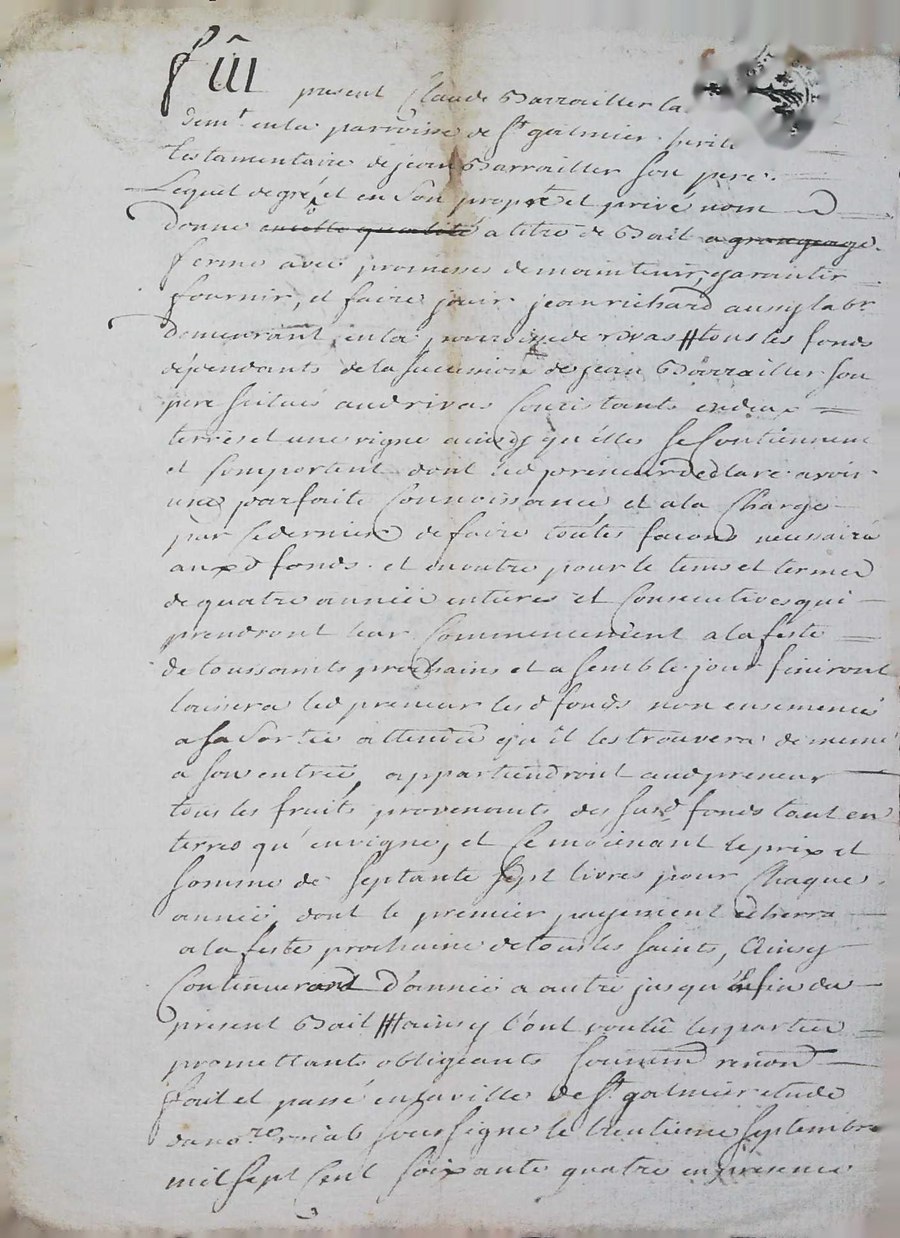 fût
present Claude Barrailler la
demt en la parroisse de St galmier herit
testamentaire de jean Barrailler son pere.
Lequel de gré, et en son propre et privé nom
donne en cette qualité a titre de Bail a grangeage
ferme avec promesses de maintenir, garantir
fournir, et faire jouir jean richard aussy labr
demeurant en la parroisse de rivas # tous les fonds
dépendants de la succession de jean Barrailler son
pere scitués aud rivas Concistants en deux
terres et une vigne ainsy qu'elles se Contiennent
et Comportent dont led preneur declare avoir
une parfaite Connoissance, et a la Charge
par ce dernier de faire toutes façons necessaire
auxd fonds. et en outre pour le tems et terme
de quatre année entieres et Consecutives qui
prendront leur Commencement a la feste
de toussaints prochains et a semble jour finiront
laissera led preneur lesd fonds non ensemencé
a sa Sortie attendu qu'il les trouvera de meme
a son entrée, appartiendront aud preneur
tous les fruits provenants des susd fonds tant en
terres qu'en vigne, et Ce moienant le prix et
somme de septante sept livres pour Chaque
année, dont le premier payement echerra
a la feste prochaine de tous les saints, Ainsy
Continuerand d'année a autre jusqu'en fin du
present Bail # ainsy l'ont voulu les partie
promettants obligeants soumend renond
fait et passé en la ville de St galmier etude
du nore roial soussigné le trentieme septembre
mil sept Cent soixante quatre en presence